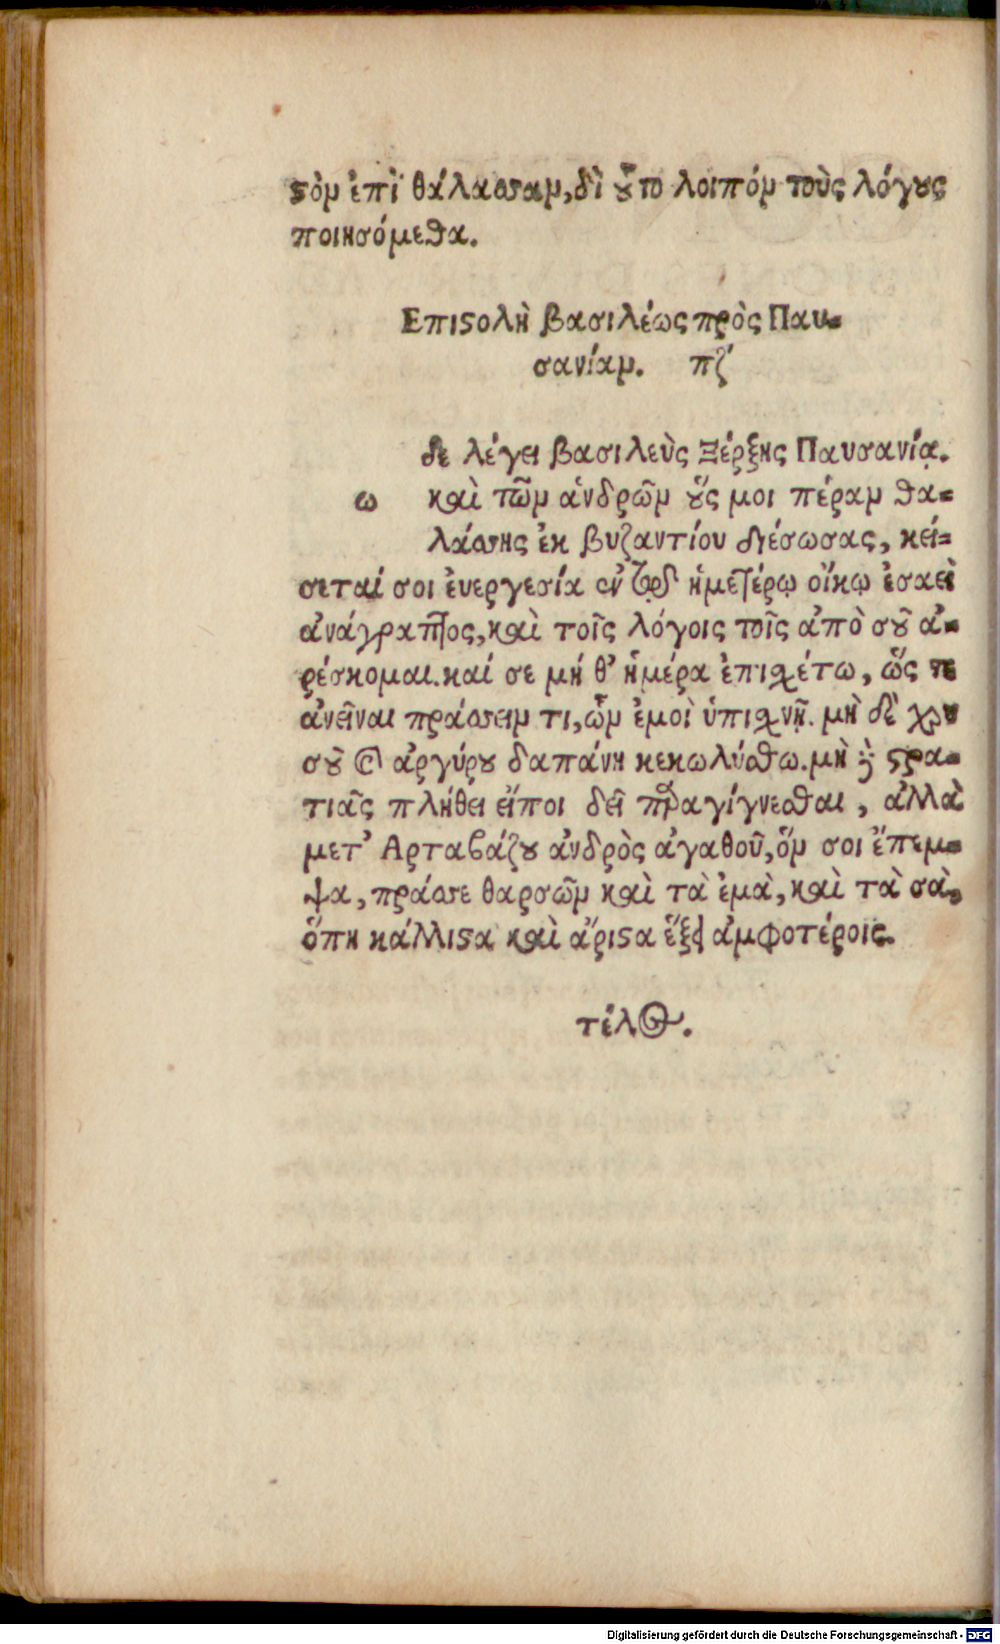 στὸν ἐπὶ θάλασσαν, δι' οὗ το λοιπὸν τοὺς λόγους
ποιησόμεθα.
Επιστολὴ βασιλέως πρὸς Παυ-
σανίαν. πζ
δε λέγει βασιλεὺς Ξέρξης Παυσανίᾳ.
ω καὶ τῶν ἀνδρῶν οὕς μοι πέραν θα-
λάσσης ἐκ βυζαντίου διέσωσας, κεί-
σεταί σοι ἐυεργεσία ἐν τῷ ἡμετέρῳ οἴκῳ ἐσαεὶ
ἀνάγραπτος, καὶ τοῖς λόγοις τοῖς ἀπὸ σοῦ ἀ-
ρέσκομαι. καί σε μή θ' ἡμέρα ἐπισχέτω, ὥς τε
ἀνεῖναι πράσσειν τι, ὧν ἐμοὶ ὑπισχνῇ. μὴ δὲ χρυ
σοῦ καὶ ἀργύρου δαπάνη κεκωλύσθω. μὴ δὲ στρα-
τιᾶς πλήθει εἴποι δεῖ παραγίγνεσθαι, ἀλλὰ
μετ' Αρταβάζου ἀνδρὸς ἀγαθοῦ, ὅν σοι ἔπεμ-
ψα, πράσσε θαρσῶν καὶ τὰ ἐμὰ, καὶ τὰ σὰ,
ὅπη κάλλιστα καὶ ἄριστα ἕξει ἀμφοτέροις.
τέλος.
Digitalisierung gefördert durch die Deutsche Forschungsgemeinschaft - DFG